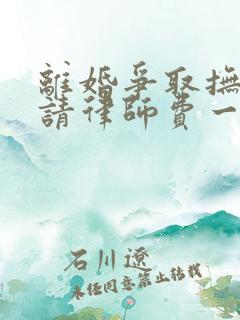 離婚爭取撫
請律師費一
石川遼
未經同意禁止轉載